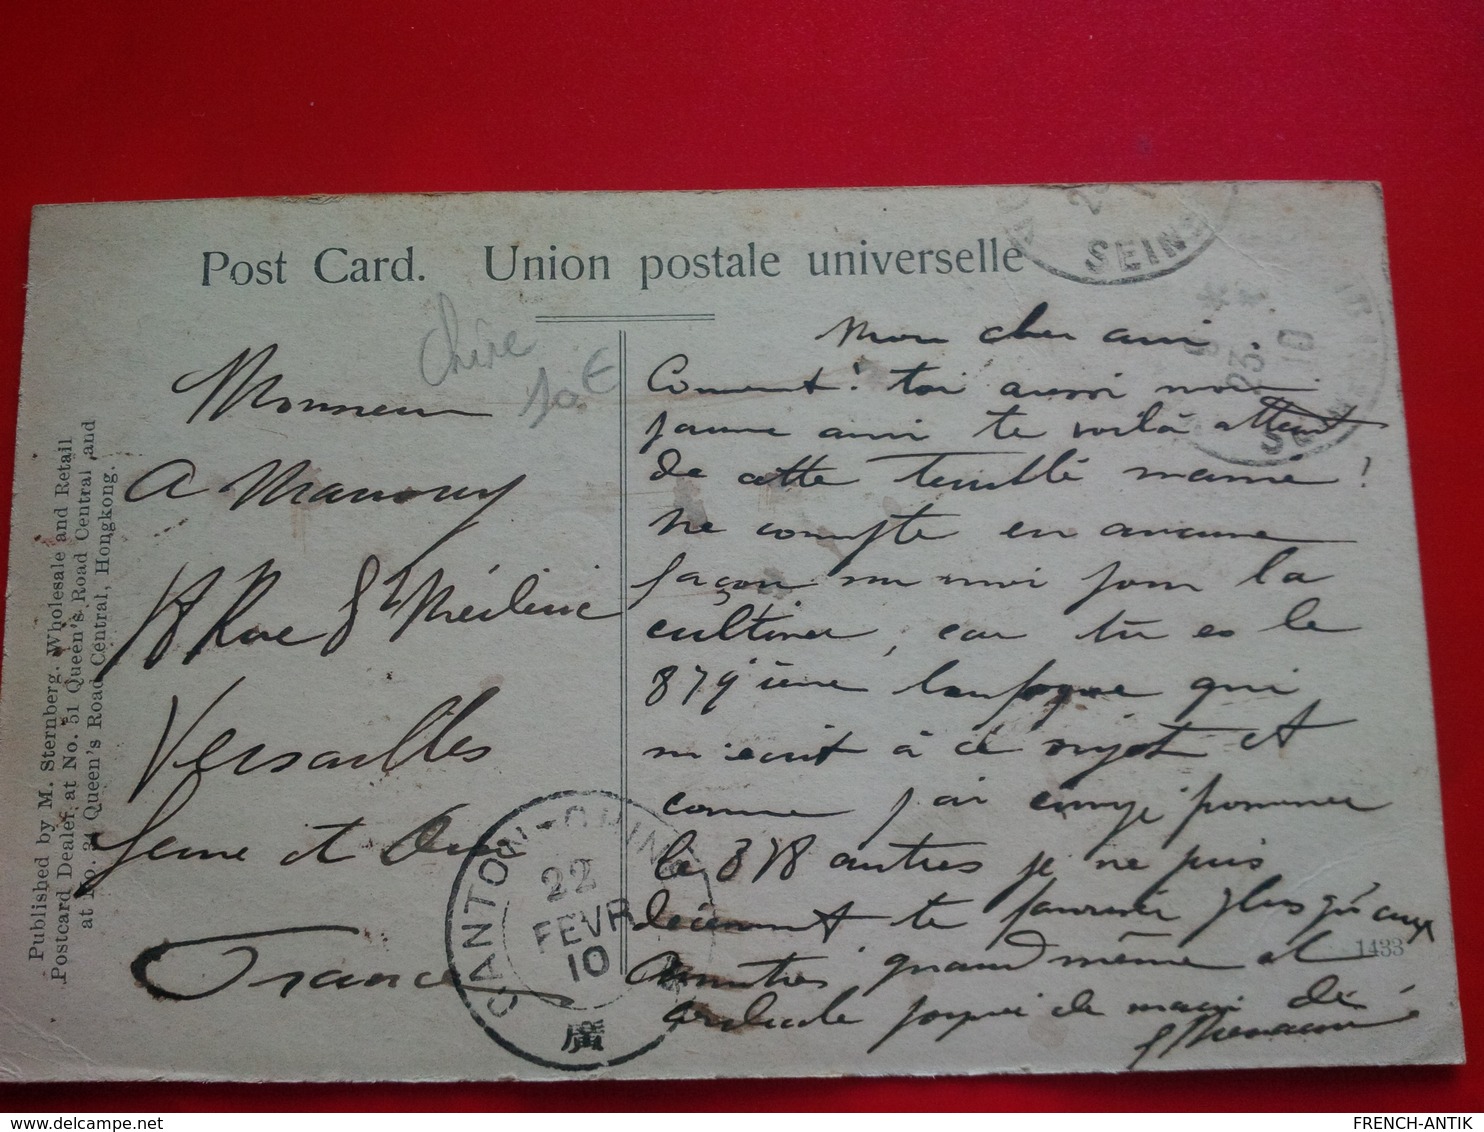 Post Card. Union postale universelle
Chine
10 €
Monsieur
A
18 Rue St Médéric
Versailles
Seine et Oise
France
Published by M. Sternberg. Wholesale and Retail
Postcard Dealer, at No. 51 Queen's Road Central and
at No. 34 Queen's Road Central, Hongkong.
Mon cher ami.
Comment! toi aussi mon
jeune ami te voilà atteint
de cette terrible manie!
ne compte en aucune
façon sur moi pour la
cultiver, car tu es le
879 ième loufoque qui
m'ecrit à ce sujet et
comme j'ai envoyé promener
le 878 autres je ne puis
décemment te favoriser plus qu'eux
Amitiés quand même et
cordiale poignée de main de
CANTON-CHINE
22
FEVR
10
廣
SEINE
23
10
1433
FRENCH-ANTIK